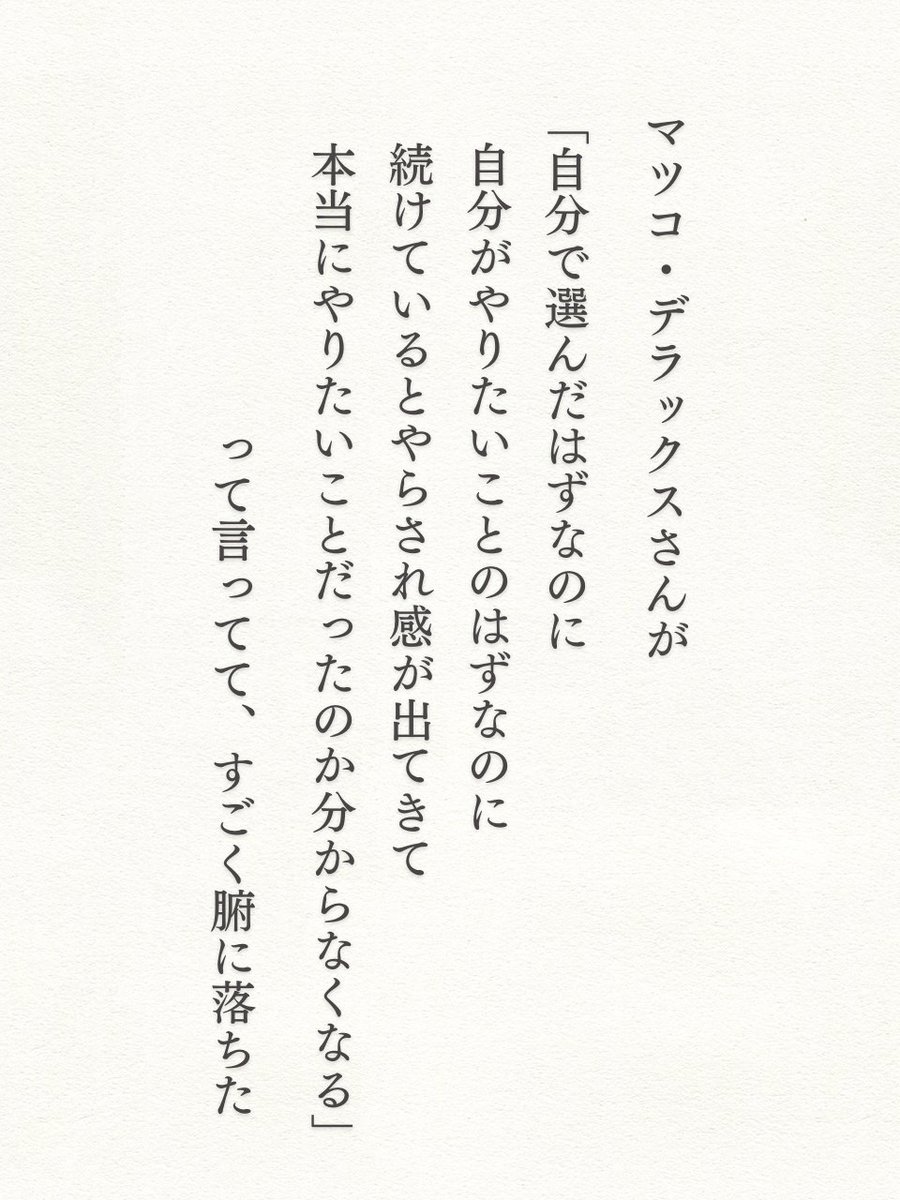 マツコ・デラックスさんが
「自分で選んだはずなのに
自分がやりたいことのはずなのに
続けているとやらされ感が出てきて
本当にやりたいことだったのか分からなくなる」
って言ってて、すごく腑に落ちた